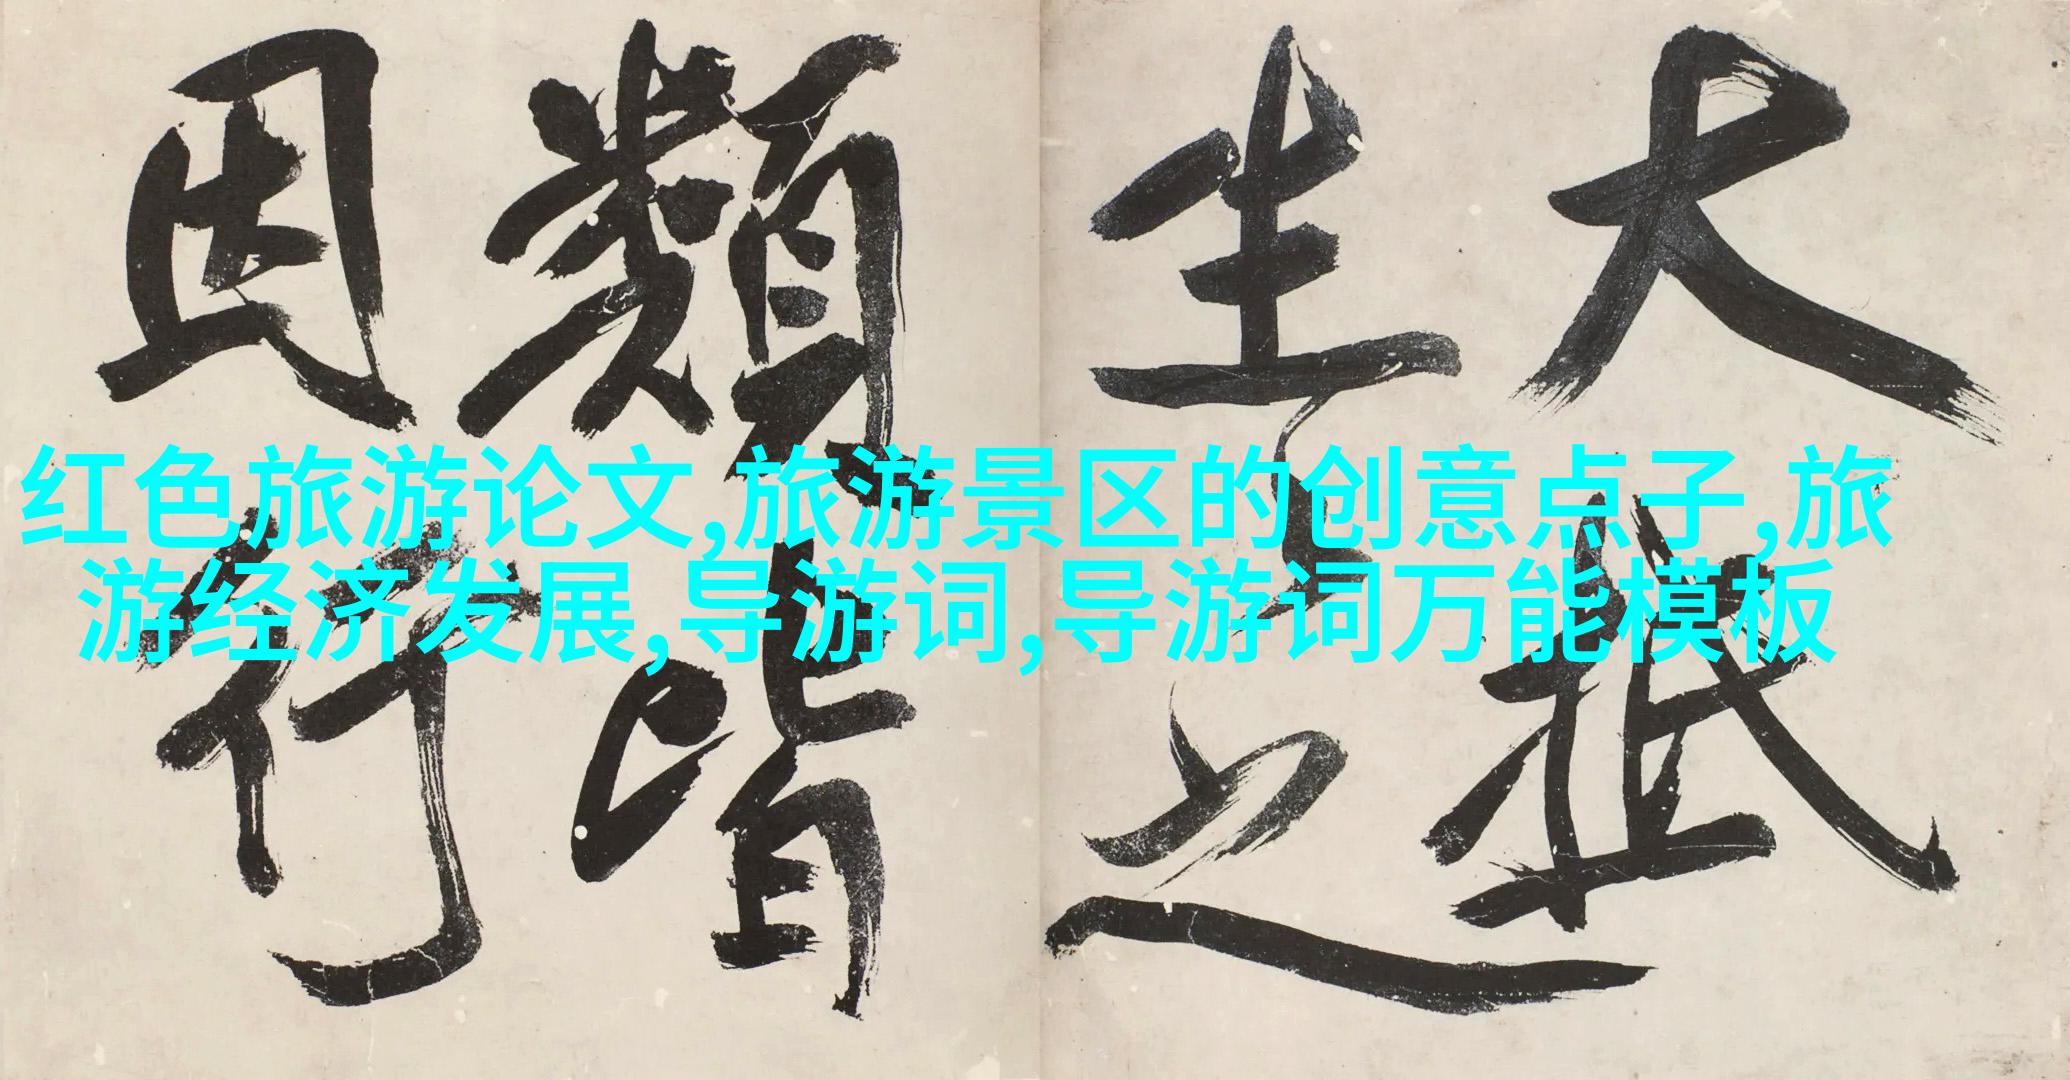 大抵
生之
類皆
因行
红色旅游论文,旅游景区的创意点子,旅
游经济发展,导游词,导游词万能模板